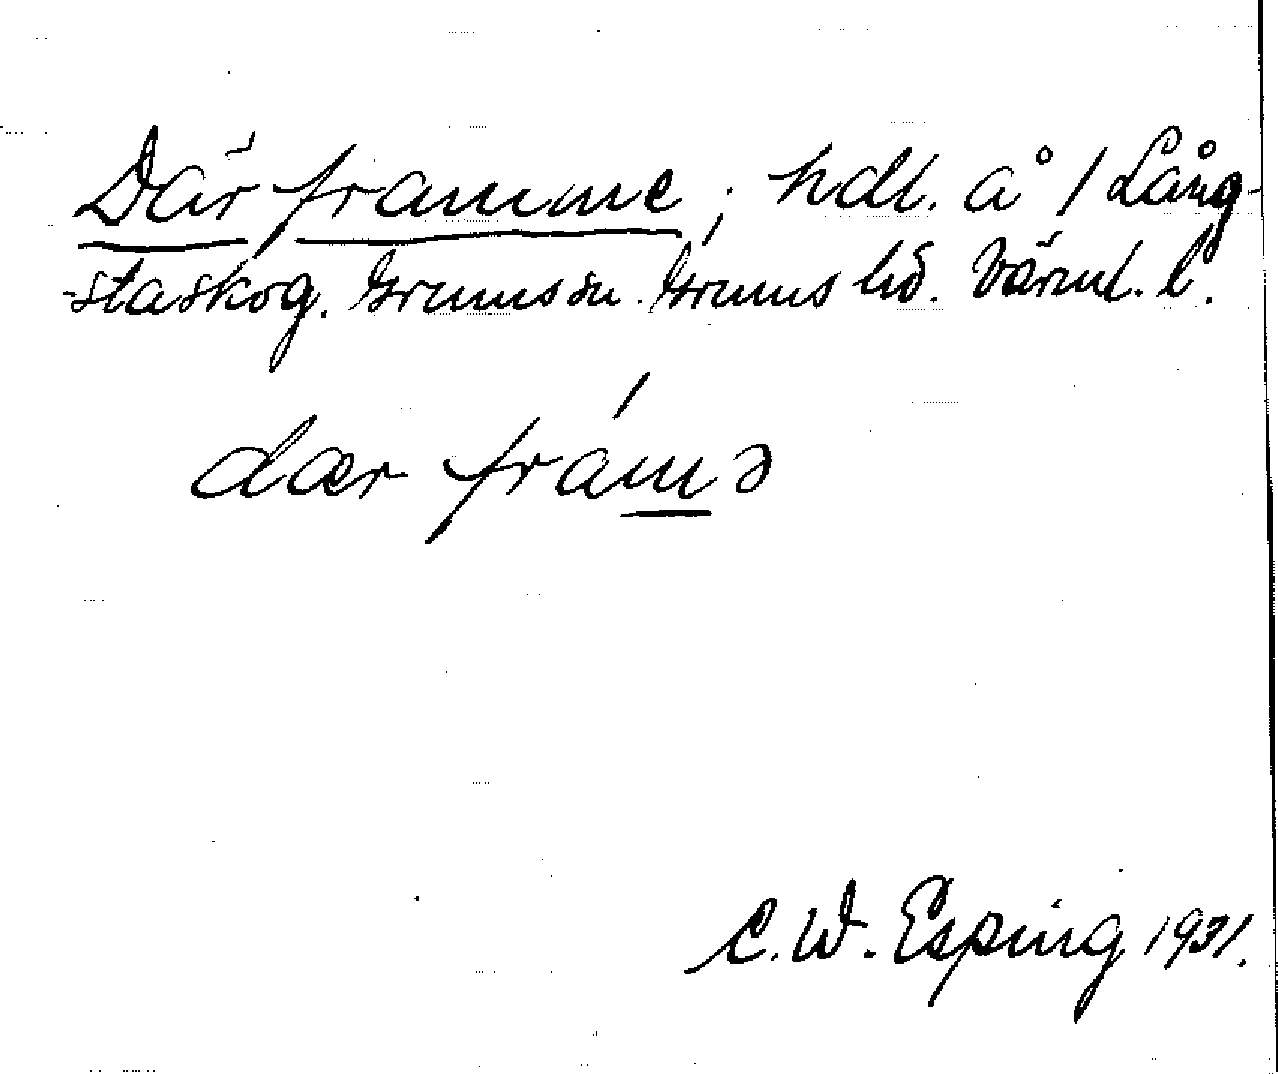 Där framme; hdl. å 1 Lång-
-staskog. Grums sn. Grums hd. Värml. l.
dær framə
C. W. Esping 1931.